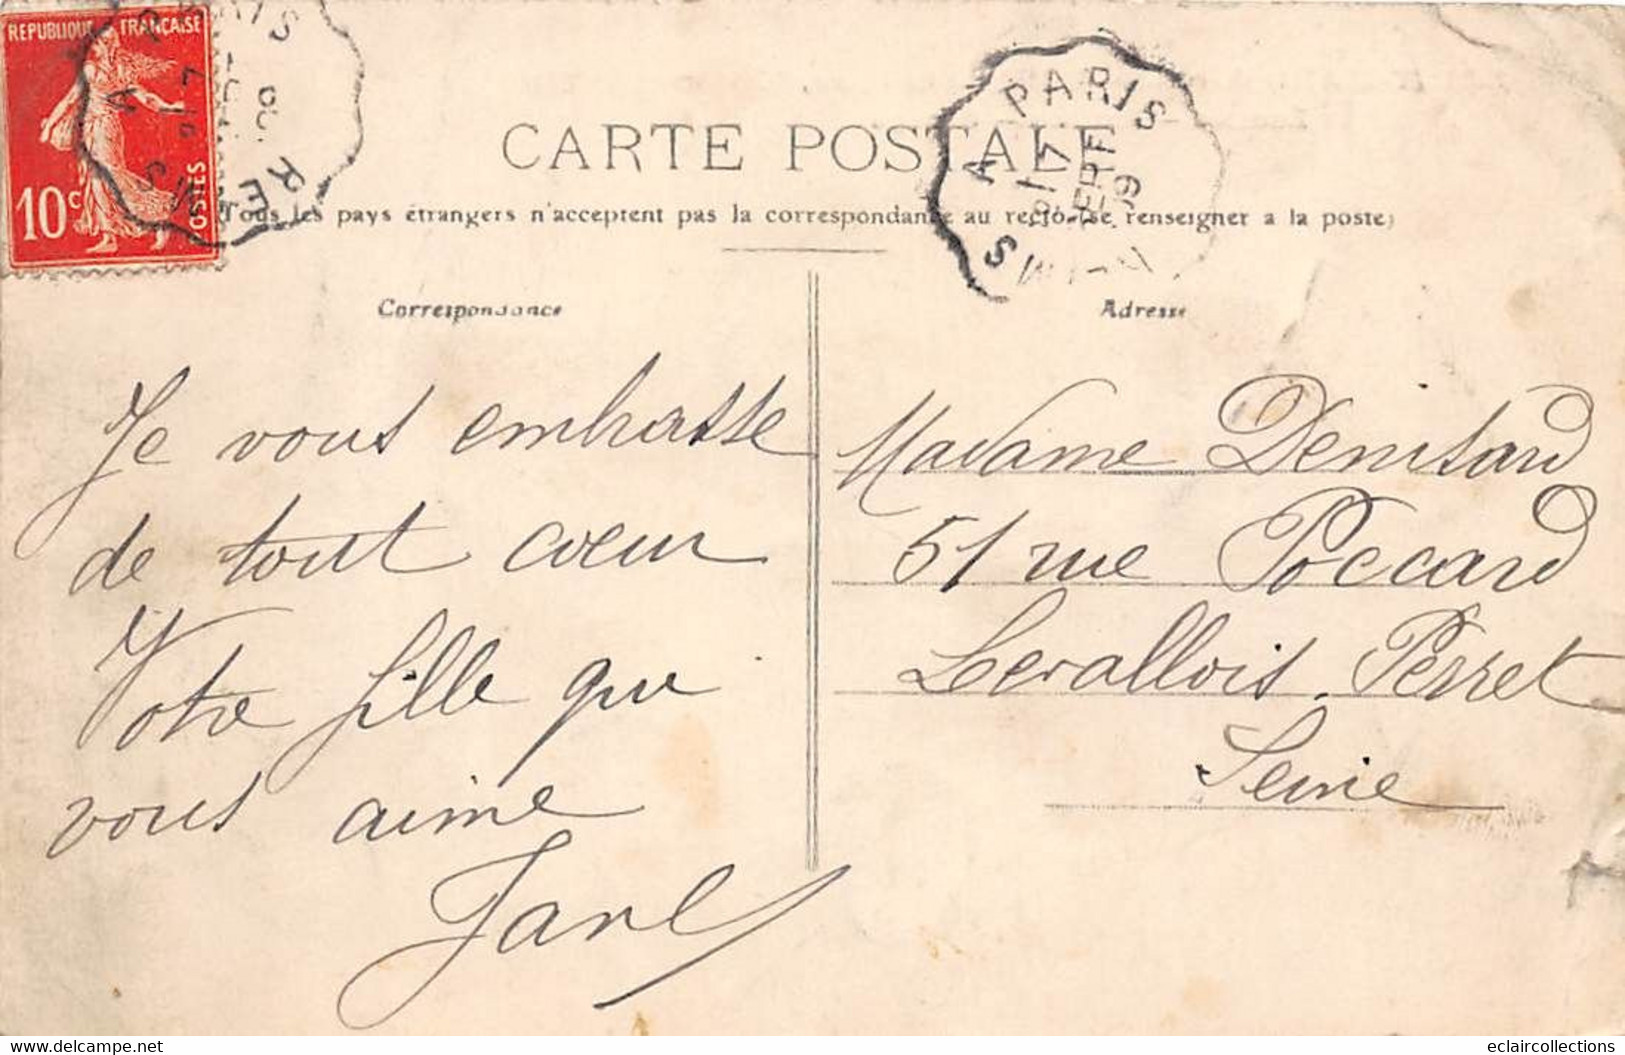 REPUBLIQUE FRANÇAISE
10c POSTES
PARIS A REIMS
PARIS A REIMS
CARTE POSTALE
(Tous les pays étrangers n'acceptent pas la correspondance au recto-(se renseigner à la poste)
Correspondance
Adresse
Je vous embrasse
de tout cœur
Votre fille qui
vous aime
Madame Denisard
51 rue Poccard
Levallois-Perret
Seine
eclaircollections
www.delcampe.net